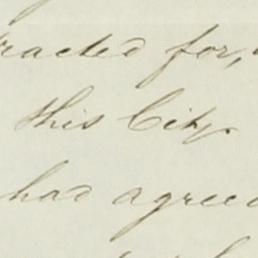 racted for,
this City.
had agreed